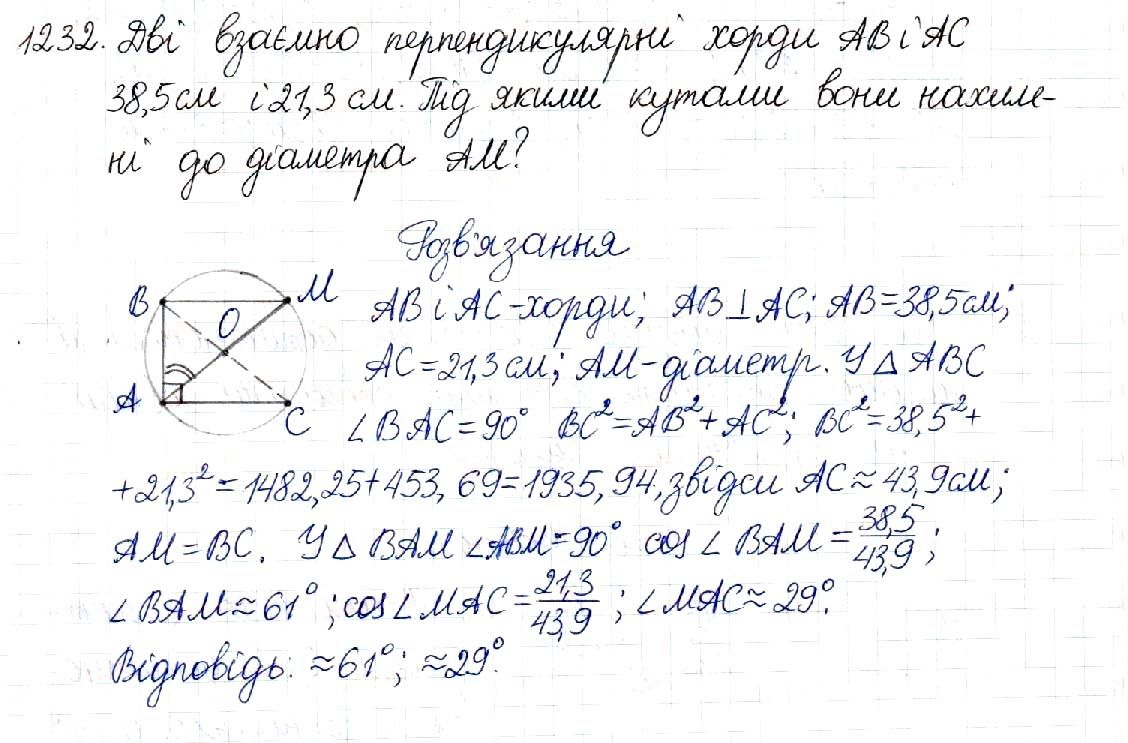 1232. Дві взаємно перпендикулярні хорди AB і AC
38,5 см і 21,3 см. Під якими кутами вони нахиле-
ні до діаметра AM?
Розв'язання
B M O A C
AB і AC - хорди; AB ⊥ AC; AB = 38,5 см;
AC = 21,3 см; AM - діаметр. У △ ABC
∠BAC = 90° BC² = AB² + AC²; BC² = 38,5² +
+ 21,3² = 1482,25 + 453,69 = 1935,94, звідси AC ≈ 43,9 см;
AM = BC. У △ BAM ∠ABM = 90° cos ∠ BAM = 38,5/43,9;
∠BAM ≈ 61°; cos ∠ MAC = 21,3/43,9; ∠MAC ≈ 29°.
Відповідь: ≈ 61°; ≈ 29°.